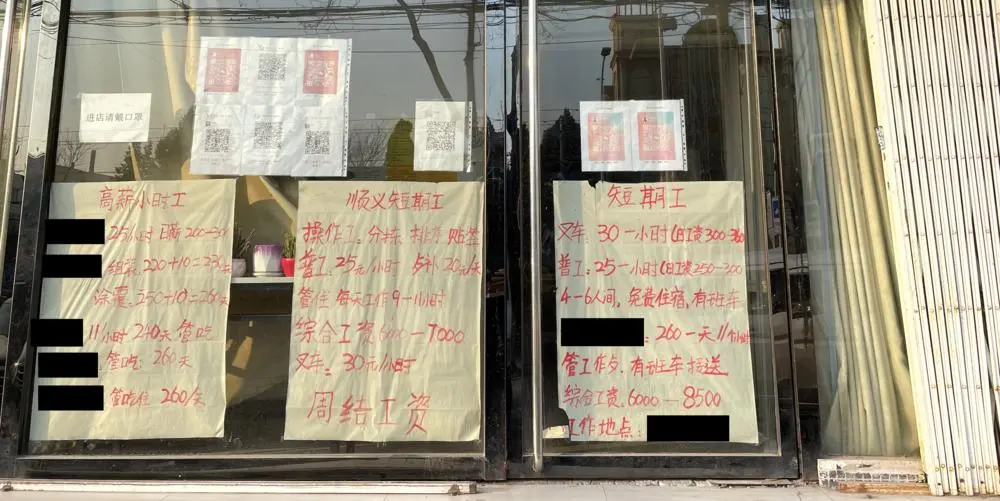 进店请戴口罩
高薪小时工
25/小时 日薪 200-300
组装 220+10=230/天
涂覆 250+10=260/天
11小时 240天 管吃
管吃: 260天
管吃住 260/天
顺义短期工
操作工: 分拣 排序 贴签
普工: 25元/小时 补20元/天
管住 每天工作9-小时
综合工资6000-7000
叉车: 30元/小时
周结工资
短期工
叉车: 30一小时(日工资300-360
普工: 25一小时(日工资250-300
4-6人间, 免费住宿, 有班车
: 260一天11个小时
管工作夕, 有班车接送
综合工资, 6000-8500
工作地点: